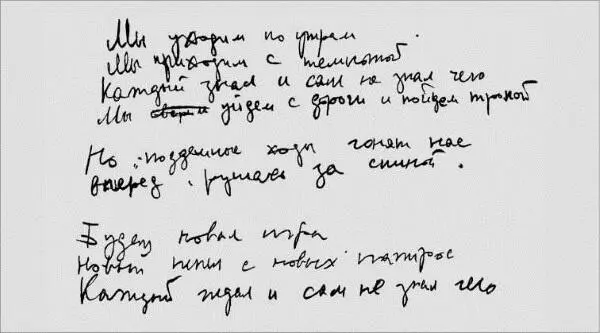 Мы уходим по утрам
Мы приходим с темнотой
Каждый знал и сам не знал чего
Мы уйдем с дороги и пойдем тропой
Но подземные ходы гонят нас
вперед, рушась за спиной.
Будет новая игра
новый с новых
Каждый ждал и сам не знал чего